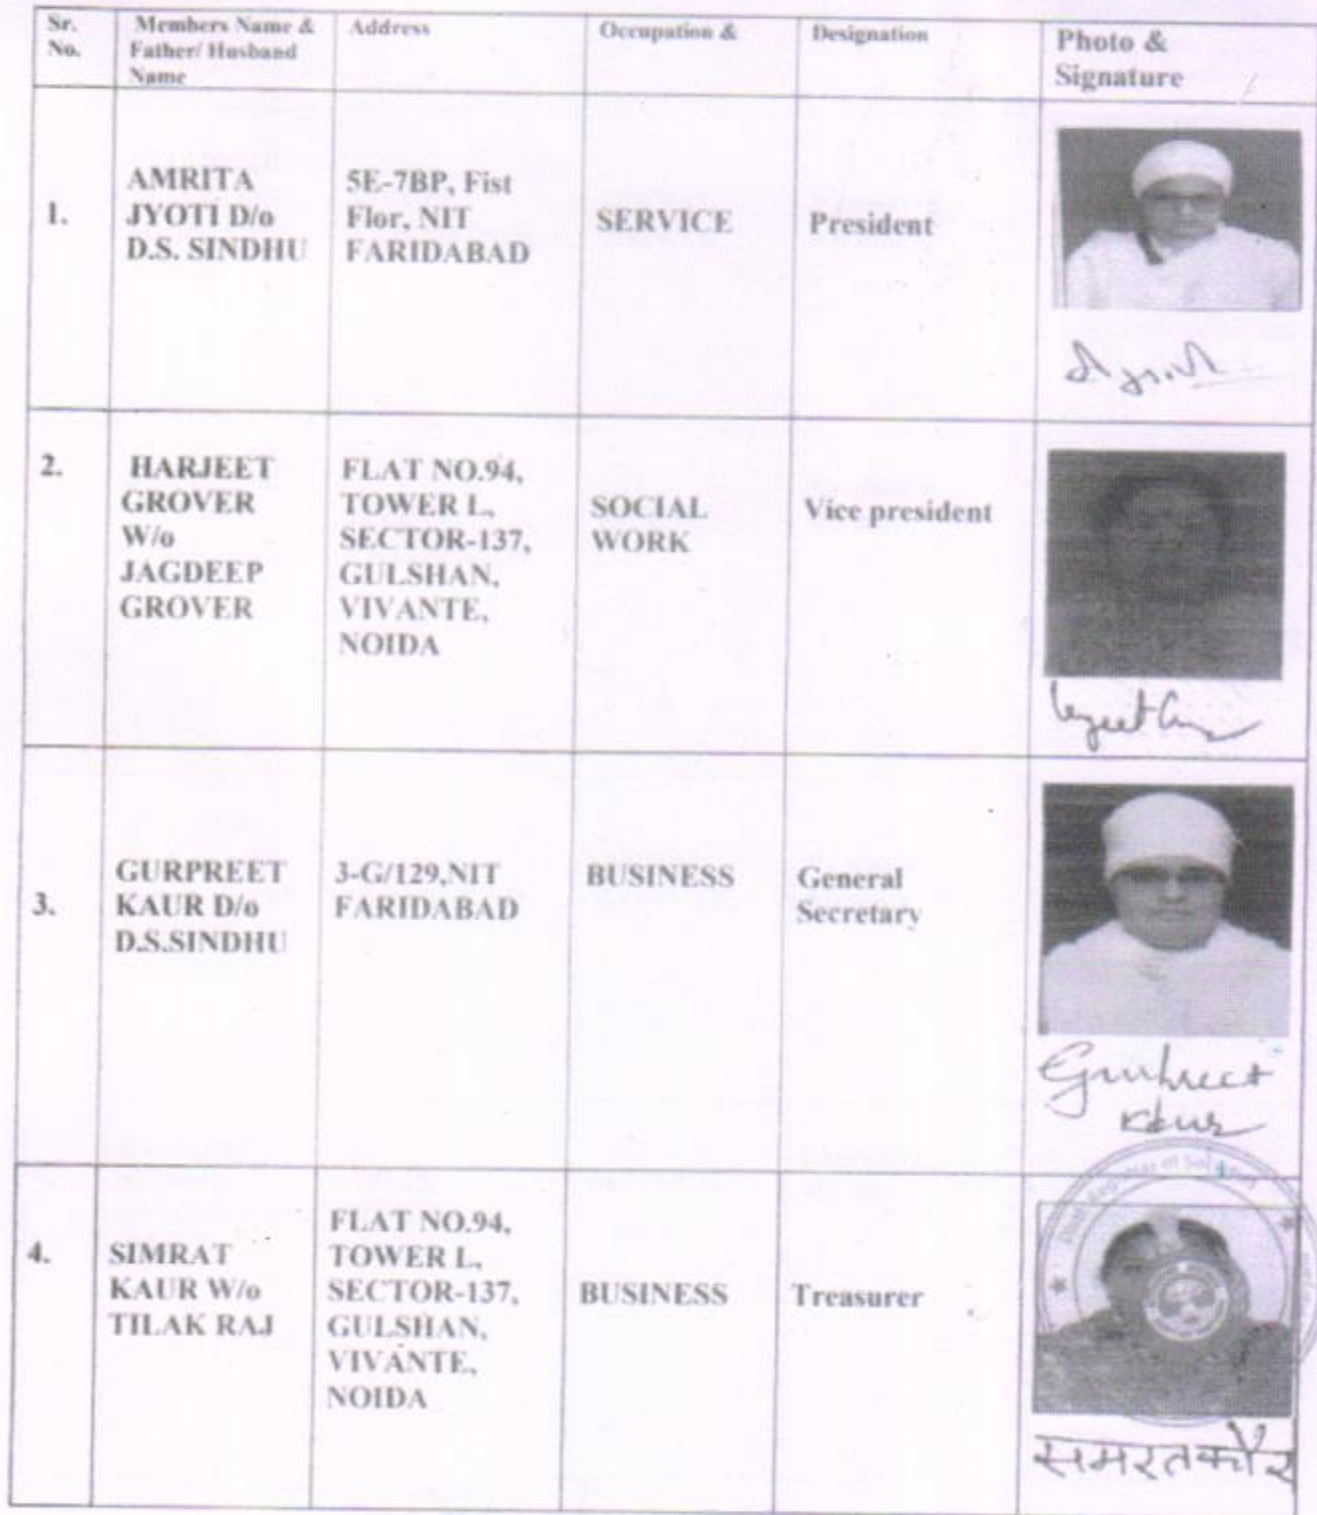 Sr. No.
Members Name & Father/ Husband Name
Address
Occupation &
Designation
Photo & Signature
1.
AMRITA
JYOTI D/o
D.S. SINDHU
5E-7BP, Fist
Flor, NIT
FARIDABAD
SERVICE
President
2.
HARJEET
GROVER
W/o
JAGDEEP
GROVER
FLAT NO.94,
TOWER L,
SECTOR-137,
GULSHAN,
VIVANTE,
NOIDA
SOCIAL
WORK
Vice president
3.
GURPREET
KAUR D/o
D.S.SINDHU
3-G/129,NIT
FARIDABAD
BUSINESS
General
Secretary
Gurpreet
Kaur
4.
SIMRAT
KAUR W/o
TILAK RAJ
FLAT NO.94,
TOWER L,
SECTOR-137,
GULSHAN,
VIVANTE,
NOIDA
BUSINESS
Treasurer
समरत कौर